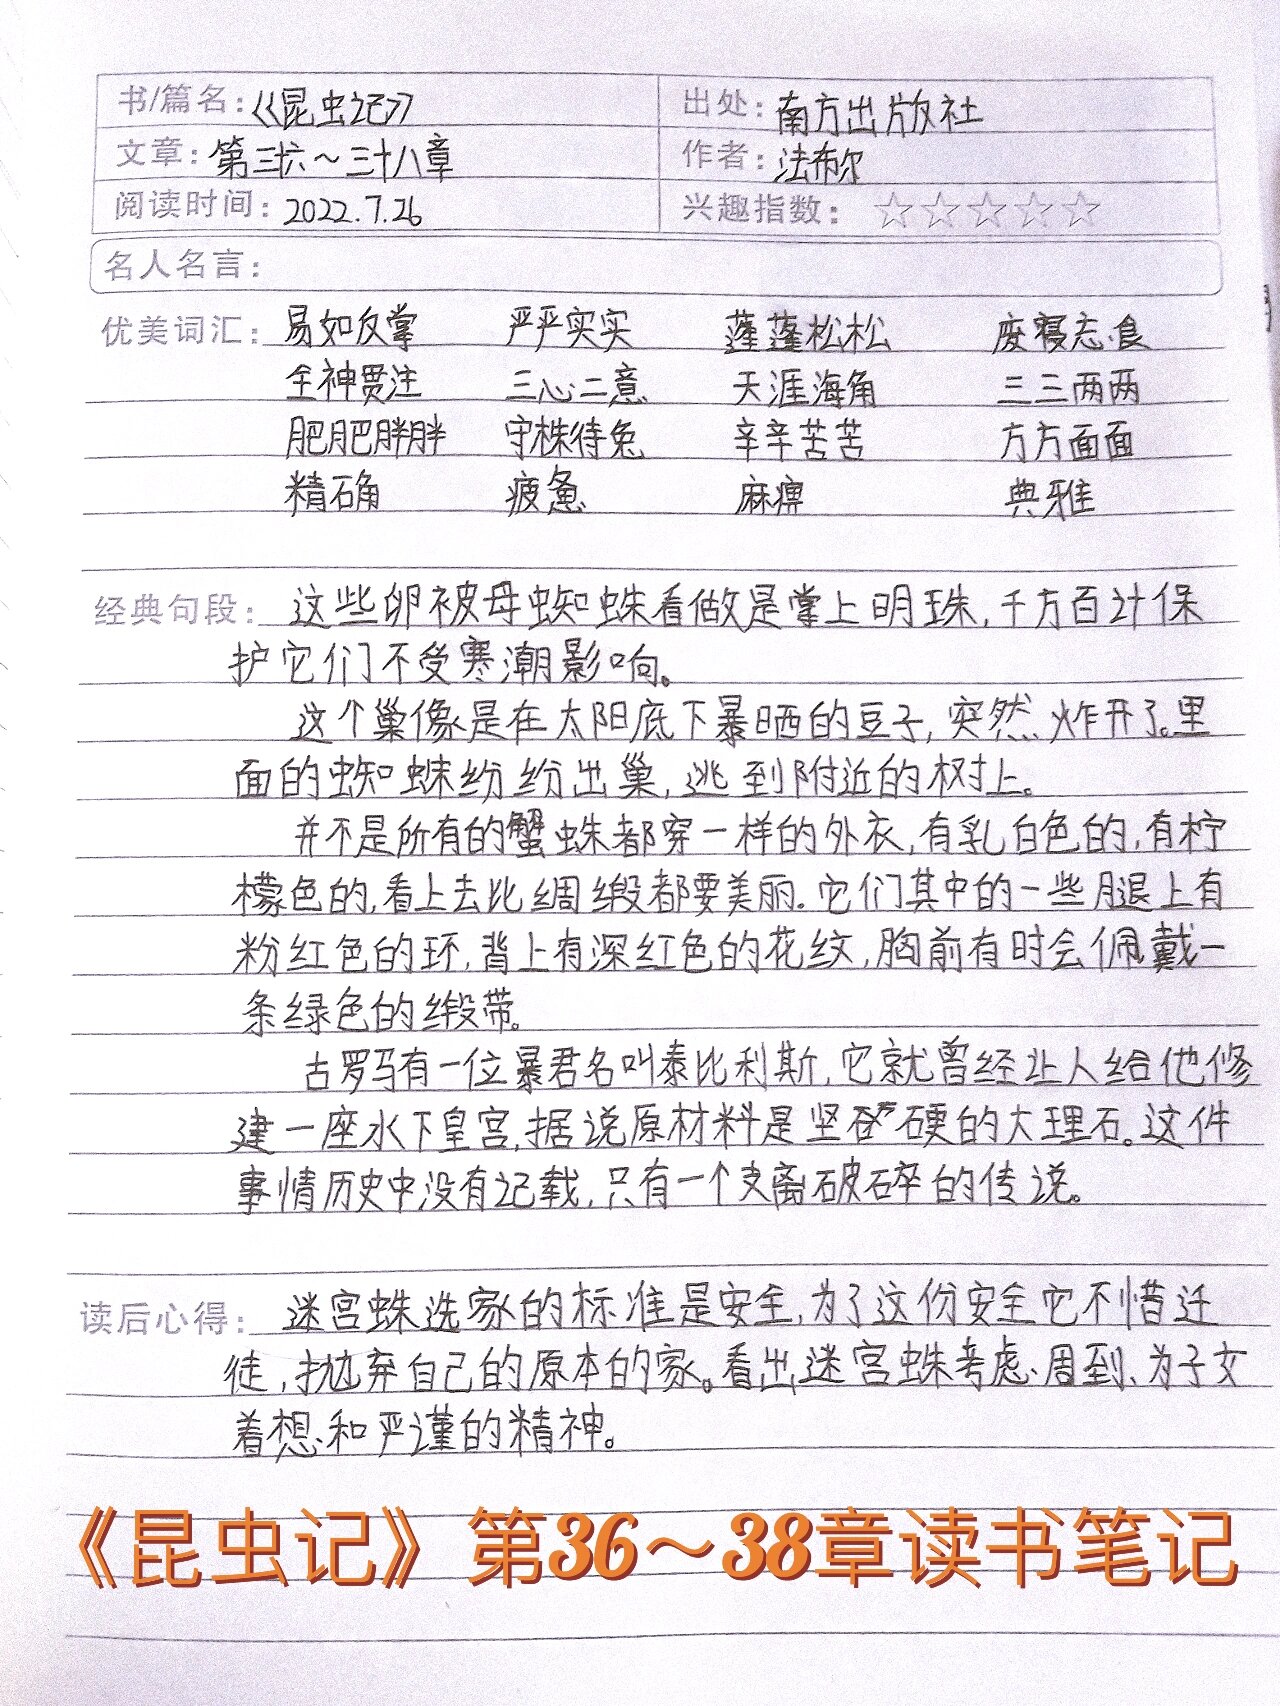 书/篇名：《昆虫记》 出处：南方出版社
文章：第三十六～三十八章 作者：法布尔
阅读时间：2022.7.26 兴趣指数：☆☆☆☆☆
名人名言：
优美词汇：易如反掌 严严实实 蓬蓬松松 废寝忘食
全神贯注 三心二意 天涯海角 三三两两
肥肥胖胖 守株待兔 辛辛苦苦 方方面面
精确 疲惫 麻痹 典雅
经典句段：这些卵被母蜘蛛看做是掌上明珠，千方百计保
护它们不受寒潮影响。
这个巢像是在太阳底下暴晒的豆子，突然炸开了。里
面的蜘蛛纷纷出巢，逃到附近的树上。
并不是所有的蟹蛛都穿一样的外衣，有乳白色的，有柠
檬色的，看上去比绸缎都要美丽。它们其中的一些腿上有
粉红色的环，背上有深红色的花纹，胸前有时会佩戴一
条绿色的缎带。
古罗马有一位暴君名叫泰比利斯，它就曾经让人给他修
建一座水下皇宫，据说原材料是坚硬的大理石。这件
事情历史中没有记载，只有一个支离破碎的传说。
读后心得：迷宫蛛选家的标准是安全，为了这份安全它不惜迁
徙，抛弃自己的原本的家。看出迷宫蛛考虑周到、为子女
着想和严谨的精神。
《昆虫记》第36～38章读书笔记